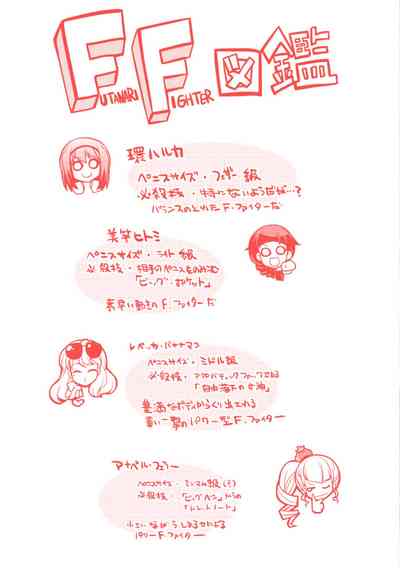 FUTANARI FIGHTER 図鑑
環ハルカ
ペニスサイズ・フェザー級
必殺技・特にないようだが…?
バランスのとれたF.ファイターだ
美竿ヒトミ
ペニスサイズ・ライト級
必殺技・相手のペニスをのみ込む
「ビッグ・ポケット」
素早い動きのF.ファイターだ
レベッカ・バナナマン
ペニスサイズ・ミドル級
必殺技・
「自由落下の女神」
豊満なボディからくり出される
重い一撃のパワー型F.ファイター
アナベル・フェラー
ペニスサイズ・ミニマム級
必殺技・「ビッグベン」からの
小さいながら
パワーF.ファイター